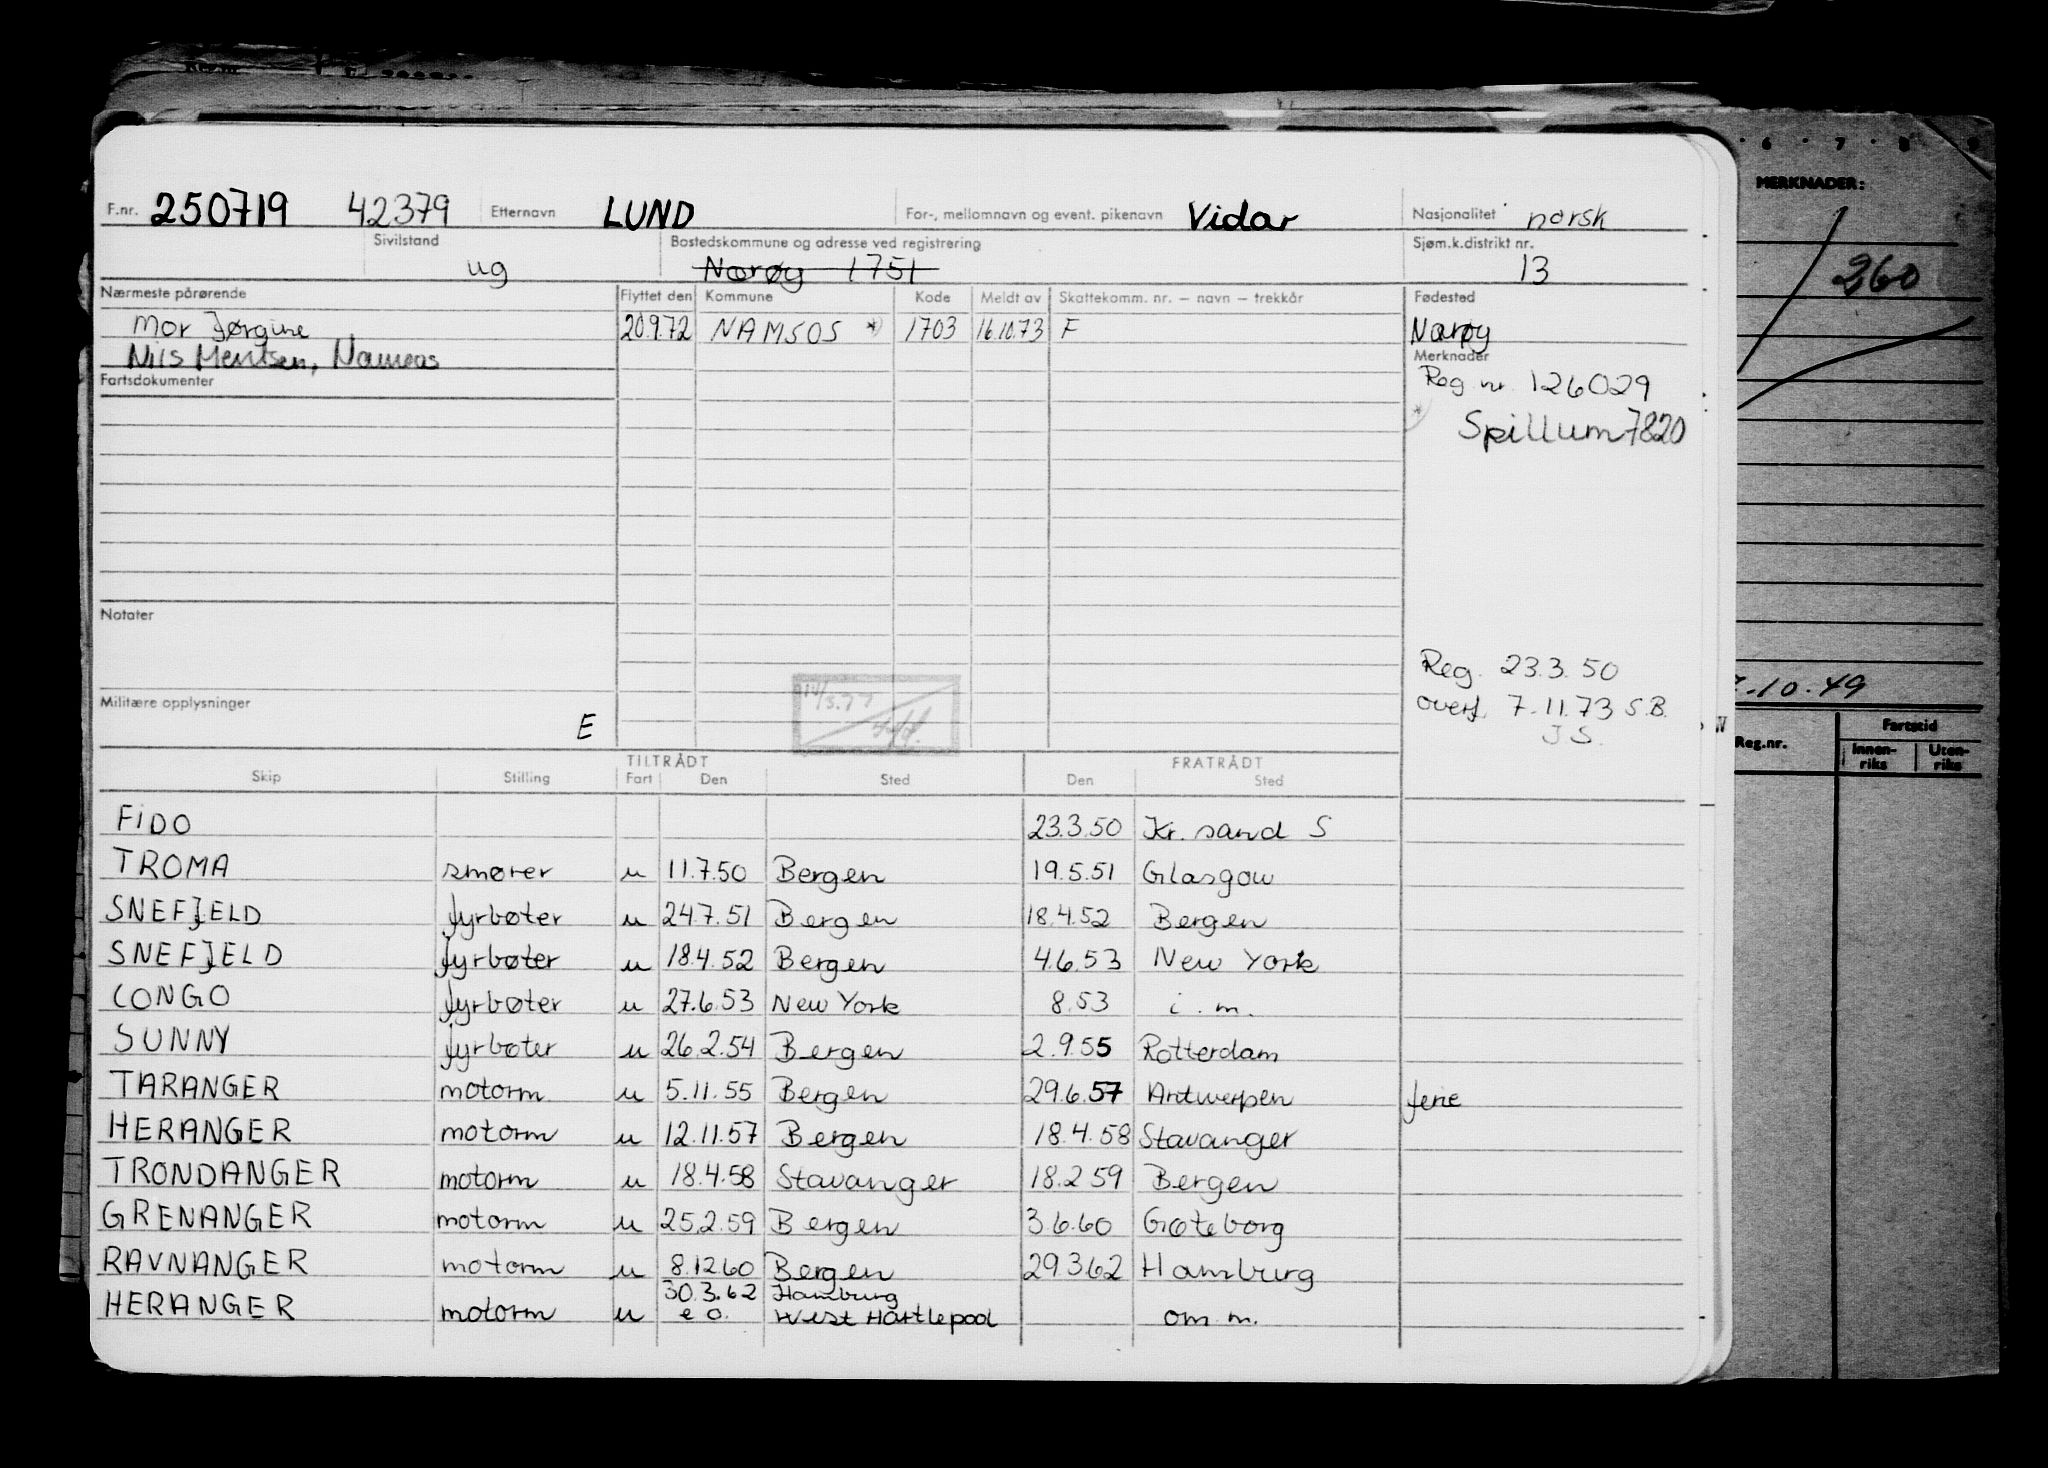 F.nr. 250719 42379 Etternavn LUND For-, mellomnavn og event. pikenavn Vidar Nasjonalitet norsk
Sivilstand ug Bostedskommune og adresse ved registrering Nærøy 1751 Sjøm.k.distrikt nr. 13
Nærmeste pårørende Flyttet den Kommune Kode Meldt av Skattekomm. nr. – navn – trekkår Fødested
Mor Jørgine 20.9.72 NAMSOS *) 1703 16.10.73 F Nærøy
Nils Mentsen, Namsos Merknader
Fartsdokumenter Reg. nr. 126029
*) Spillum 7820
Notater
Reg. 23.3.50
Militære opplysninger E overf. 7.11.73 S.B.
J S.
TILTRÅDT FRATRÅDT
Skip Stilling Fart Den Sted Den Sted
FIDO 23.3.50 Kr. sand S
TROMA smører u 11.7.50 Bergen 19.5.51 Glasgow
SNEFJELD fyrbøter u 24.7.51 Bergen 18.4.52 Bergen
SNEFJELD fyrbøter u 18.4.52 Bergen 4.6.53 New York
CONGO fyrbøter u 27.6.53 New York 8.53 i. m.
SUNNY fyrbøter u 26.2.54 Bergen 2.9.55 Rotterdam
TARANGER motorm u 5.11.55 Bergen 29.6.57 Antwerpen ferie
HERANGER motorm u 12.11.57 Bergen 18.4.58 Stavanger
TRONDANGER motorm u 18.4.58 Stavanger 18.2.59 Bergen
GRENANGER motorm u 25.2.59 Bergen 3.6.60 Gøteborg
RAVNANGER motorm u 8.12.60 Bergen 29.3.62 Hamburg
30.3.62 Hamburg
HERANGER motorm u e o. West Hartlepool om m.
6 · 7 · 8 · 9
MERKNADER:
360
10.49
Reg.nr. Fartstid
Innen-riks Uten-riks